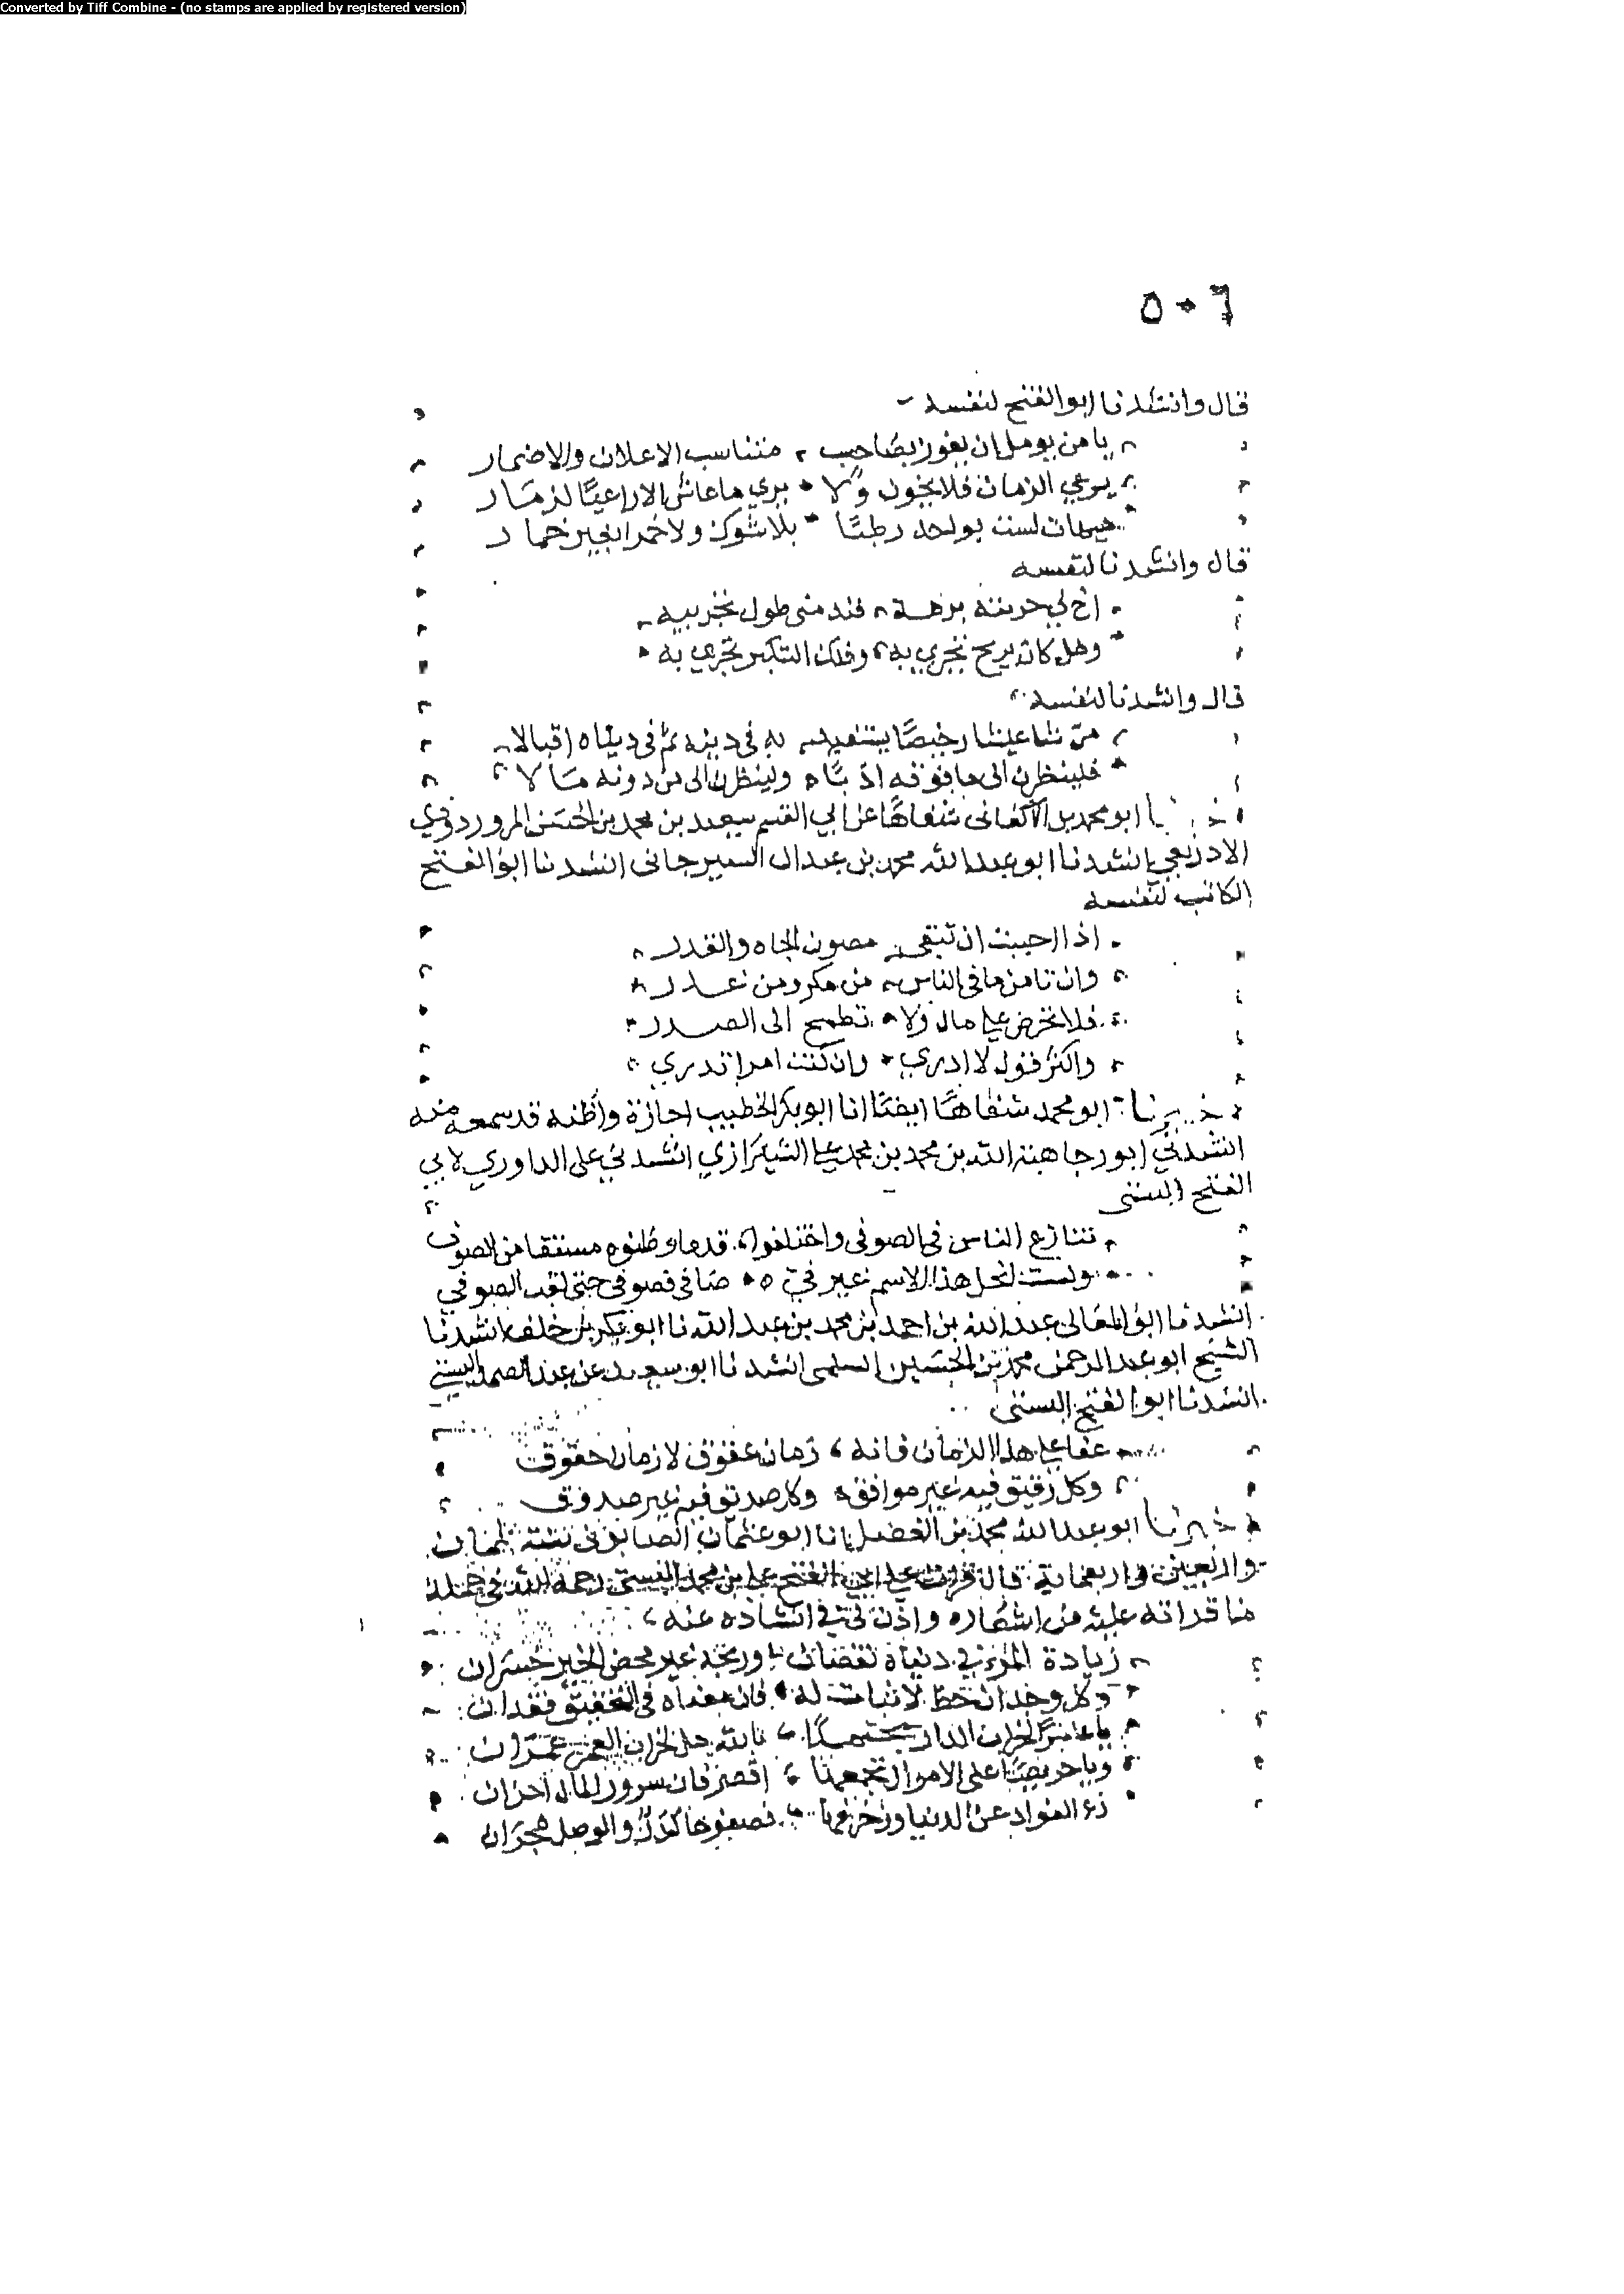 Converted by Tiff Combine - (no stamps are applied by registered version)
٥٠٦
قال وانشدنا ابو الفتح لنفسه
يا من يومل ان يفوز بصاحب متناسب الاعلان والاضمار
يرعي الزمان فلا يخون ولا يري ما عاش الا راعيا لذمار
هيهات لست بواجد رطبا بلا شوك ولا خمرا بغير خمار
قال وانشدنا لنفسه
اخ لي جربته برهة فند مني طول تجربيه
وهل كان يربح تجري به وفلك التكبر تجري به
قال وانشدنا لنفسه
من شا عيشا رخيصا يستفيد به في دينه ثم في دنياه اقبالا
فلينظرن الى ما فوقه ادبا ولينظرن الى من دونه مالا
اخبرنا ابو محمد بن الاكفاني شفاها عن ابي القسم سعيد بن محمد بن الحسن المروروذي
انشدنا ابو عبد الله محمد بن عبدال السيرجاني انشدنا ابو الفتح
الكاتب لنفسه
اذا احببت ان تبقى مصون الجاه والقدر
وان تامن ما في الناس من مكر ومن غدر
فلا تحرص على مال ولا تطمح الى الصدر
واكثر قول لا ادري وان كنت امرا تدري
اخبرنا ابو محمد شفاها ايضا انا ابو بكر الخطيب اجازة واظنه قد سمعه منه
انشدني ابو رجا هبة الله بن محمد بن محمد بن علي الشيرازي انشدني علي الداوري لابي
الفتح البستى
تنازع الناس في الصوفي واختلفوا قدما وظنوه مشتقا من الصوف
ولست انحل هذا الاسم غير فتى صافى فصوفي حتى لقب الصوفي
انشدنا ابو المعالي عبد الله بن احمد بن محمد بن عبد الله نا ابو بكر بن خلف انشدنا
الشيخ ابو عبد الرحمن محمد بن الحسين السلمى انشدنا ابو سعيد عن عبد الصمد البستي
انشدنا ابو الفتح البستى
عفا على هذا الزمان فانه زمان عقوق لا زمان حقوق
وكل رفيق فيه غير موافق وكل صديق فيه غير صدوق
اخبرنا ابو عبد الله محمد بن الفضل انا ابو عثمان الصابوني سنة ثمان
واربعين واربعماية قال قرات على ابي الفتح علي بن محمد البستى رحمه الله في جملة
ما قراته عليه من اشعاره واذن لي في انشاده عنه
زيادة المرء في دنياه نقصان وربحه غير محض الخير خسران
وكل وجدان حظ لا ثبات له فان معناه في التحقيق فقدان
يا عامرا لخراب الدار مجتهدا بالله هل لخراب العمر عمران
ويا حريصا على الاموال تجمعها اقصر فان سرور المال احزان
دع الفواد عن الدنيا وزخرفها فصفوها كدر والوصل هجران